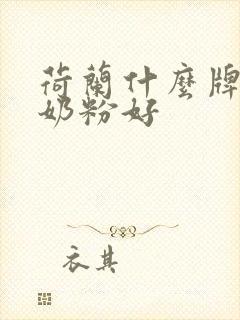 荷蘭什麼牌
奶粉好
衣其